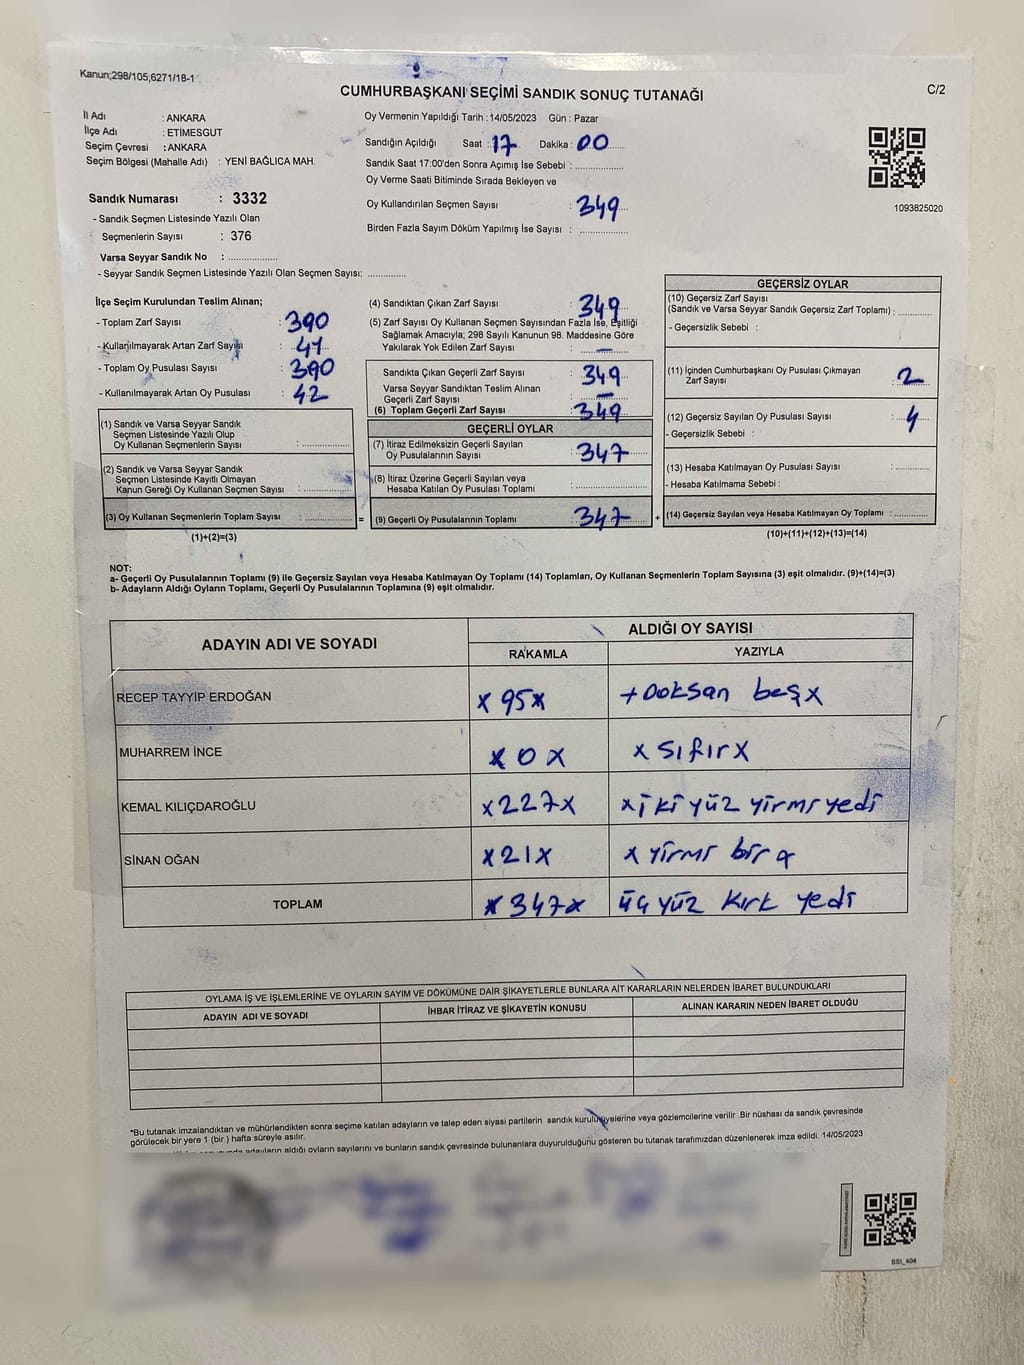 Kanun;298/105;6271/18-1
CUMHURBAŞKANI SEÇİMİ SANDIK SONUÇ TUTANAĞI
C/2
İl Adı : ANKARA
İlçe Adı : ETİMESGUT
Seçim Çevresi : ANKARA
Seçim Bölgesi (Mahalle Adı) : YENİ BAĞLICA MAH.
Sandık Numarası : 3332
- Sandık Seçmen Listesinde Yazılı Olan
Seçmenlerin Sayısı : 376
Varsa Seyyar Sandık No : ..................
- Seyyar Sandık Seçmen Listesinde Yazılı Olan Seçmen Sayısı: ............
Oy Vermenin Yapıldığı Tarih : 14/05/2023 Gün : Pazar
Sandığın Açıldığı Saat : 17 Dakika : 00
Sandık Saat 17:00'den Sonra Açımış İse Sebebi : ...............
Oy Verme Saati Bitiminde Sırada Bekleyen ve
Oy Kullandırılan Seçmen Sayısı : 349
Birden Fazla Sayım Döküm Yapılmış İse Sayısı : ...............
1093825020
İlçe Seçim Kurulundan Teslim Alınan;
- Toplam Zarf Sayısı : 390
- Kullanılmayarak Artan Zarf Sayısı : 41
- Toplam Oy Pusulası Sayısı : 390
- Kullanılmayarak Artan Oy Pusulası : 42
(1) Sandık ve Varsa Seyyar Sandık
Seçmen Listesinde Yazılı Olup
Oy Kullanan Seçmenlerin Sayısı : ...............
(2) Sandık ve Varsa Seyyar Sandık
Seçmen Listesinde Kayıtlı Olmayan
Kanun Gereği Oy Kullanan Seçmen Sayısı : ...............
(3) Oy Kullanan Seçmenlerin Toplam Sayısı : ............... =
(1)+(2)=(3)
(4) Sandıktan Çıkan Zarf Sayısı : 349
(5) Zarf Sayısı Oy Kullanan Seçmen Sayısından Fazla İse, Eşitliği
Sağlamak Amacıyla; 298 Sayılı Kanunun 98. Maddesine Göre
Yakılarak Yok Edilen Zarf Sayısı : —
Sandıkta Çıkan Geçerli Zarf Sayısı : 349
Varsa Seyyar Sandıktan Teslim Alınan
Geçerli Zarf Sayısı : —
(6) Toplam Geçerli Zarf Sayısı : 349
GEÇERLİ OYLAR
(7) İtiraz Edilmeksizin Geçerli Sayılan
Oy Pusulalarının Sayısı : 347
(8) İtiraz Üzerine Geçerli Sayılan veya
Hesaba Katılan Oy Pusulası Toplamı : ...............
(9) Geçerli Oy Pusulalarının Toplamı : 347 +
GEÇERSİZ OYLAR
(10) Geçersiz Zarf Sayısı
(Sandık ve Varsa Seyyar Sandık Geçersiz Zarf Toplamı) : .........
- Geçersizlik Sebebi :
(11) İçinden Cumhurbaşkanı Oy Pusulası Çıkmayan
Zarf Sayısı : 2
(12) Geçersiz Sayılan Oy Pusulası Sayısı :
- Geçersizlik Sebebi :
(13) Hesaba Katılmayan Oy Pusulası Sayısı : .........
- Hesaba Katılmama Sebebi :
(14) Geçersiz Sayılan veya Hesaba Katılmayan Oy Toplamı : .........
(10)+(11)+(12)+(13)=(14)
NOT:
a- Geçerli Oy Pusulalarının Toplamı (9) ile Geçersiz Sayılan veya Hesaba Katılmayan Oy Toplamı (14) Toplamları, Oy Kullanan Seçmenlerin Toplam Sayısına (3) eşit olmalıdır. (9)+(14)=(3)
b- Adayların Aldığı Oyların Toplamı, Geçerli Oy Pusulalarının Toplamına (9) eşit olmalıdır.
ADAYIN ADI VE SOYADI
ALDIĞI OY SAYISI
RAKAMLA YAZIYLA
RECEP TAYYİP ERDOĞAN x 95 x + Doksan beş x
MUHARREM İNCE x 0 x x sıfır x
KEMAL KILIÇDAROĞLU x 227 x x iki yüz yirmi yedi
SİNAN OĞAN x 21 x x yirmi bir x
TOPLAM x 347 x üç yüz kırk yedi
OYLAMA İŞ VE İŞLEMLERİNE VE OYLARIN SAYIM VE DÖKÜMÜNE DAİR ŞİKAYETLERLE BUNLARA AİT KARARLARIN NELERDEN İBARET BULUNDUKLARI
ADAYIN ADI VE SOYADI İHBAR İTİRAZ VE ŞİKAYETİN KONUSU ALINAN KARARIN NEDEN İBARET OLDUĞU
*Bu tutanak imzalandıktan ve mühürlendikten sonra seçime katılan adayların ve talep eden siyasi partilerin sandık kurulu üyelerine veya gözlemcilerine verilir .Bir nüshası da sandık çevresinde
görülecek bir yere 1 (bir ) hafta süreyle asılır.
adayların aldığı oyların sayılarını ve bunların sandık çevresinde bulunanlara duyurulduğunu gösteren bu tutanak tarafımızdan düzenlenerek imza edildi. 14/05/2023
SSI_404